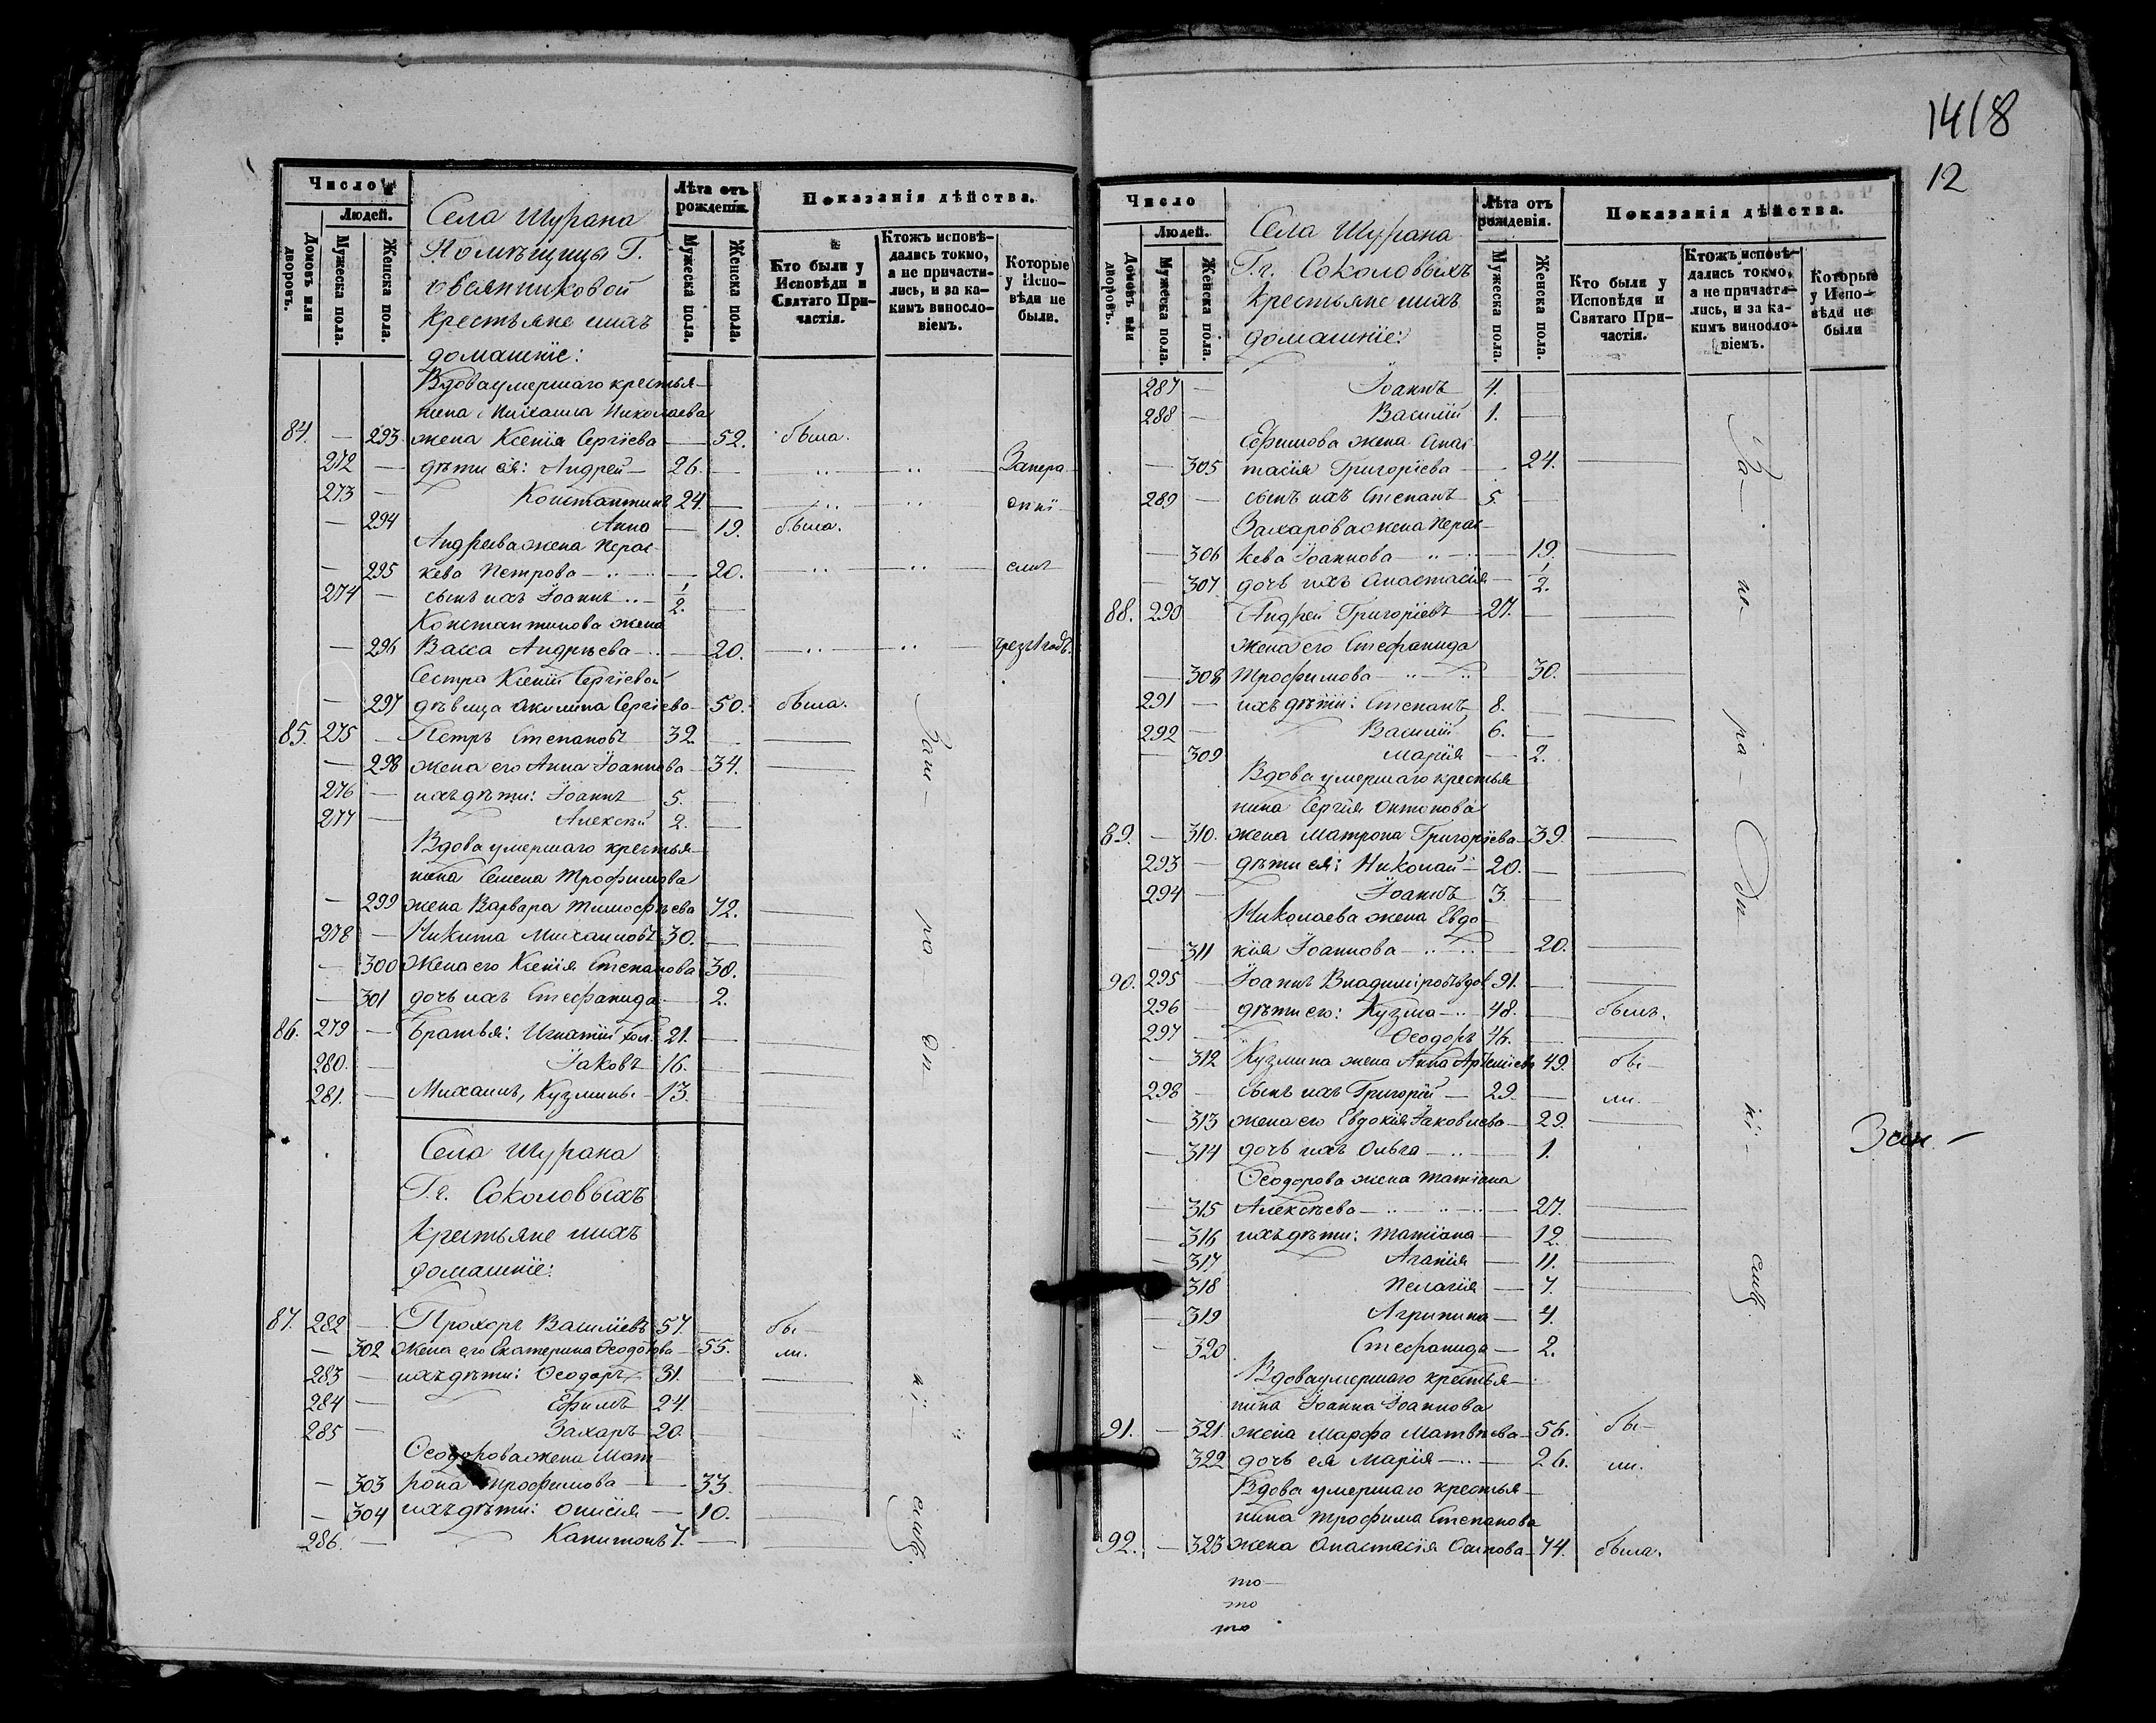 1418
12
Число
Людей.
Домовъ или дворовъ.
Мужеска пола.
Женска пола.
Села Шурана
Помѣщицы Г.
Овсянниковой
Крестьяне и ихъ
домашніе:
Лѣта отъ рожденія.
Мужеска пола.
Женска пола.
Показанія дѣйства.
Кто были у Исповѣди и Святаго Причастія.
Ктожъ исповѣдались токмо, а не причастились, и за какимъ винословіемъ.
Которые у Исповѣди не были.
Вдова умершаго крестья-
нина Михаила Николаева
84. — 293. жена Ксенія Сергіева — 52. была.
272 — дѣти ея: Андрей — 26. —
273 — Константинъ 24. —
— 294 Анна — 19. была.
Андреева жена Парас-
— 295 кева Петрова — 20.
274 — сынъ ихъ Іоаннъ 1/2. —
Константинова жена
— 296 Васса Андрѣева — 20. — чрез 1 годъ.
Сестра Ксеніи Сергіевой
— 297 дѣвица Акилина Сергіева — 50. была.
85. 275 — Петръ Степановъ 32. —
— 298 жена его Анна Іоаннова — 34.
276 — ихъ дѣти: Іоаннъ 5. —
277 — Алексѣй 2. —
Вдова умершаго крестья-
нина Семена Трофимова
— 299 жена Варвара Тимофѣева 72.
278 — Никита Михаиловъ 30. —
— 300 Жена его Ксенія Степанова 38.
— 301 дочь ихъ Стефанида — 2.
86. 279 — Братья: Игнатій хол. 21. —
280. — Іаковъ 16. —
281. — Михаилъ, Кузмины — 13.
Села Шурана
Г.г. Соколовыхъ
Крестьяне и ихъ
домашніе:
87. 282 — Прохоръ Василіевъ 57. — бы-
— 302 Жена его Екатерина Ѳеодотова — 55. ли.
283 — ихъ дѣти: Ѳеодоръ 31. —
284 — Ефимъ 24. —
285 — Захаръ 20. —
Ѳеодорова жена Мат-
— 303 рона Трофимова — 33.
— 304 ихъ дѣти: Анисія — 10.
286. — Капитонъ 7. —
Число
Людей.
Домовъ или дворовъ.
Мужеска пола.
Женска пола.
Села Шурана
Г.г. Соколовыхъ
Крестьяне и ихъ
домашніе:
Лѣта отъ рожденія.
Мужеска пола.
Женска пола.
Показанія дѣйства.
Кто были у Исповѣди и Святаго Причастія.
Ктожъ исповѣдались токмо, а не причастились, и за какимъ винословіемъ.
Которые у Исповѣди не были
287 — Іоаннъ 4. —
288 — Василій 1. —
Ефимова жена Анас-
— 305 тасія Григоріева — 24.
289 — сынъ ихъ Степанъ 5. —
Захарова жена Парас-
— 306 кева Іоаннова — 19.
— 307 дочь ихъ Анастасія — 1/2.
88. 290 Андрей Григоріевъ 27. —
жена его Стефанида
— 308 Трофимова — 30.
291 — ихъ дѣти: Степанъ 8. —
292 — Василій 6. —
— 309 Марія — 2.
Вдова умершаго крестья
нина Сергія Антонова
89. — 310. жена Матрона Григоріева — 39.
293 — дѣти ея: Николай — 20. —
294 — Іоаннъ 3. —
Николаева жена Евдо-
— 311 кія Іоаннова — 20.
90. 295 — Іоаннъ Владиміровъ вдов 91. —
296 — дѣти его: Кузма 48. — былъ.
297 — Ѳеодоръ 46. —
— 312 Кузмина жена Анна Артеміева 49. бы-
298 — сынъ ихъ Григорій — 29. — ли.
— 313 жена его Евдокія Іаковлева — 29.
— 314 дочь ихъ Ольга — 1.
Ѳеодорова жена Татіана
— 315 Алексѣева — 27.
— 316 ихъ дѣти: Татіана — 12.
— 317 Агапія — 11.
318 Пелагія — 7.
— 319 Агрипина — 4.
— 320 Стефанида — 2.
Вдова умершаго крестья-
нина Іоанна Іоаннова
91. — 321. жена Марфа Матвѣева — 56. бы-
322 дочь ея Марія — 26. ли.
Вдова умершаго крестья-
нина Трофима Степанова
92. — 323 жена Анастасія Осипова — 74. была.
то-
то
то